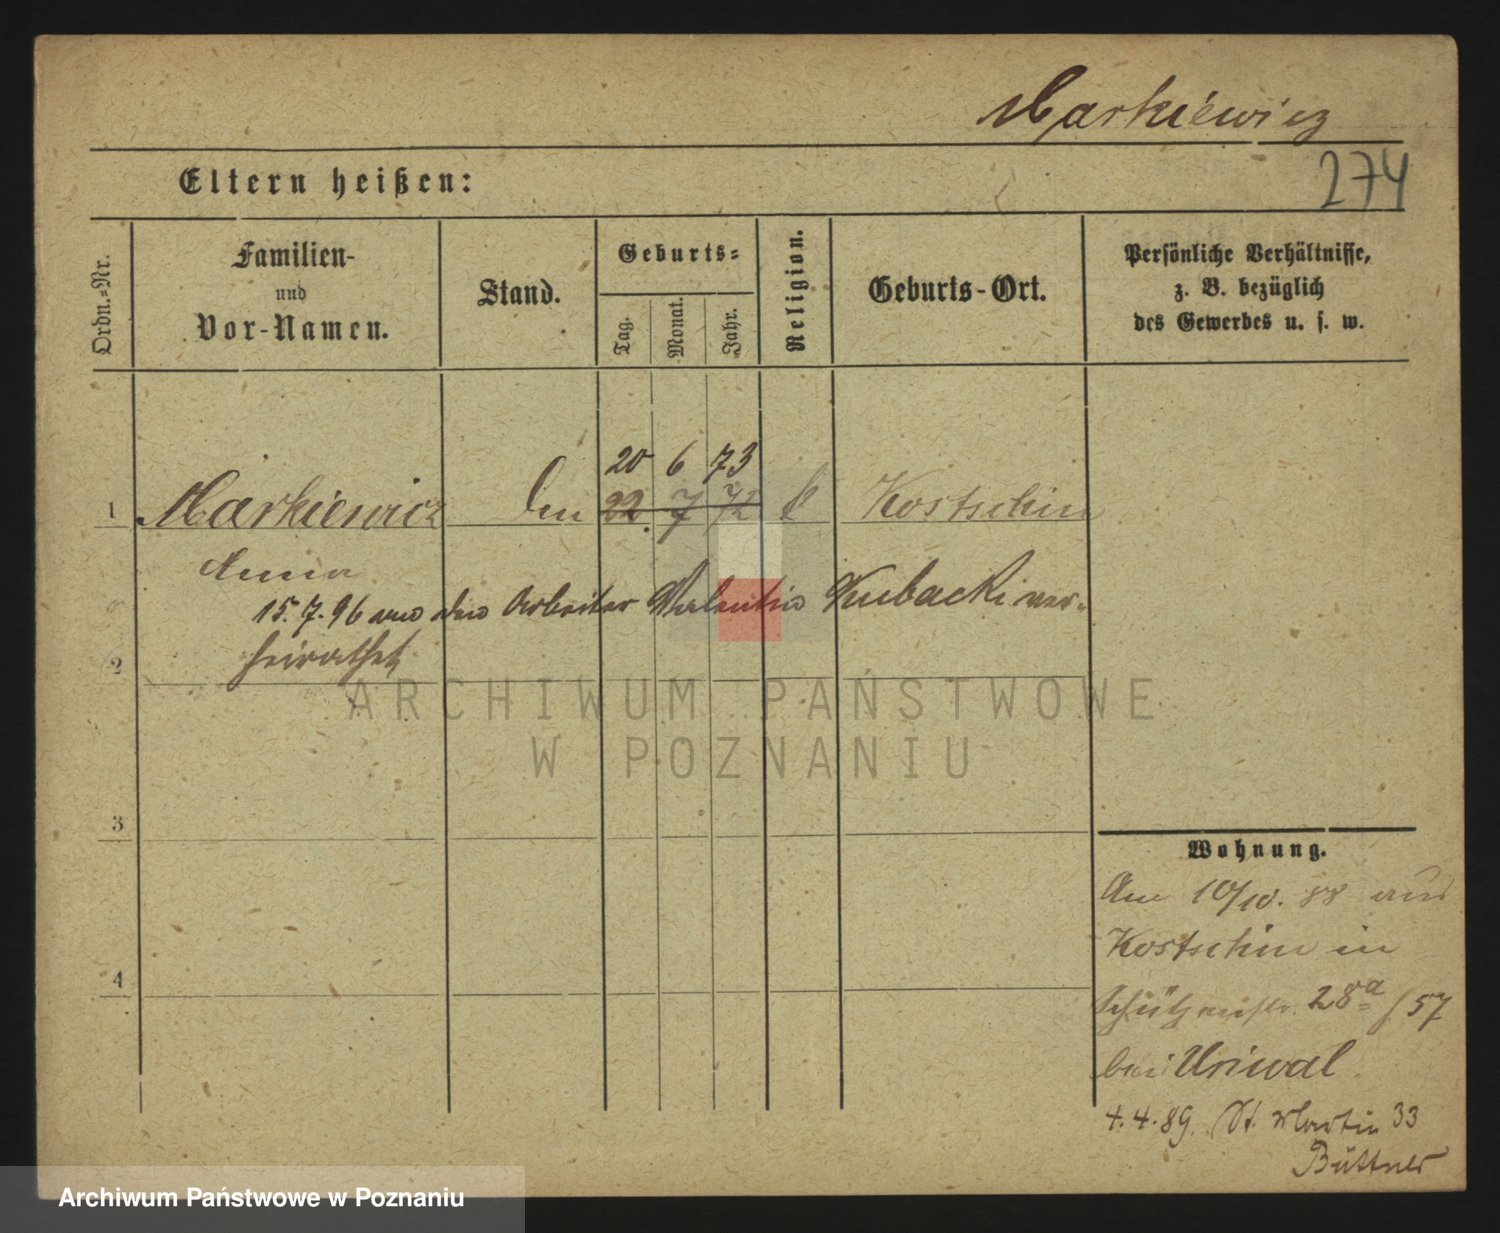 Markiewicz
274
Eltern heißen:
Ordn.-Nr.
Familien-
und
Vor-Namen.
Stand.
Geburts-
Tag.
Monat.
Jahr.
Religion.
Geburts-Ort.
Persönliche Verhältnisse,
z. B. bezüglich
des Gewerbes u. s. w.
20 6 73
1 Markiewicz 22. 7 72 k Kostschin
Anna
15. 7. 96 an den Arbeiter Valentin Kubacki ver-
2 heirathet
ARCHIWUM PAŃSTWOWE
W POZNANIU
3
4
Wohnung.
Am 10/10. 88 aus
Kostschin in
Schützenstr. 28a / 57
bei
4. 4. 89. St. Martin 33
Büttner
Archiwum Państwowe w Poznaniu